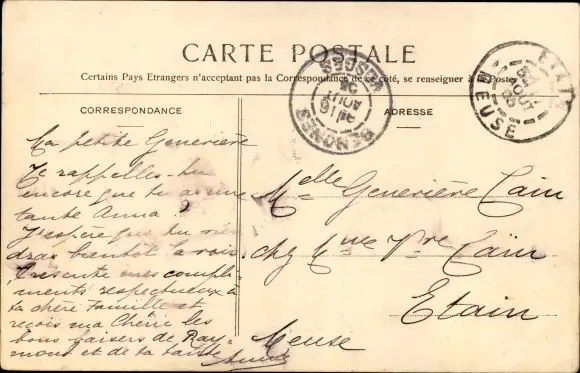 CARTE POSTALE
Certains Pays Etrangers n'acceptent pas la Correspondance de ce côté, se renseigner à la Poste
CORRESPONDANCE
Ma petite Geneviève
Te rappelles-tu
encore que tu as une
tante Anna ?
J'espère que tu
dras bientôt la voir.
Présente mes compli-
ments respectueux à
ta chère famille et
reçois ma Chérie les
bons baisers de Ray-
mond et de ta tante
Anna
ADRESSE
Melle Geneviève Cain
chez Mme Vve Cain
Etain
Meuse
BENONCES
VOSGES
AOUT
ETAIN
AOUT
MEUSE